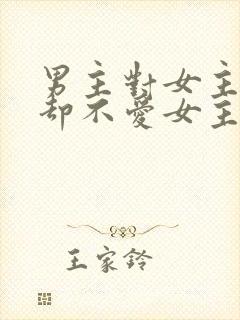 男主對女主
却不愛女主
王家鈴